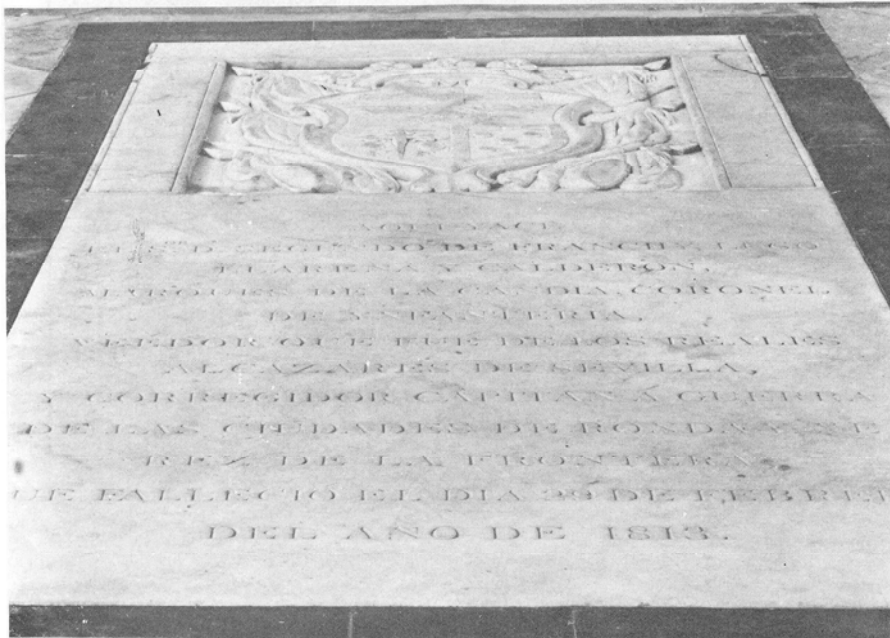 AQUI YACE
EL SR. D. SEGUNDO DE FRANCHI Y LUGO
Y CALDERÓN,
MARQUES DE LA CANDIA, CORONEL
DE YNFANTERIA,
VEEDOR QUE FUE DE LOS REALES
ALCAZARES DE SEVILLA,
Y CORREGIDOR CAPITAN Á GUERRA
DE LAS CIUDADES DE RONDA Y XE
REZ DE LA FRONTERA
UE FALLECIO EL DIA DE FEBRE
DEL AÑO DE 1813.